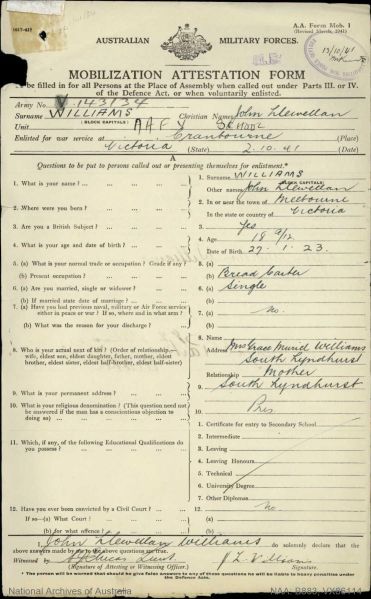 A.A. Form Mob. 1
(Revised March, 1941)
13/10/41
AUSTRALIAN MILITARY FORCES.
MOBILIZATION ATTESTATION FORM
To be filled in for all Persons at the Place of Assembly when called out under Parts III. or IV.
of the Defence Act, or when voluntarily enlisted.
Army No. V 143134
Surname WILLIAMS Christian Names John Llewellan
(BLOCK CAPITALS)
Unit A A F V
Enlisted for war service at Cranbourne (Place)
Victoria (State) 2.10.41 (Date)
A
Questions to be put to persons called out or presenting themselves for enlistment.*
1. What is your name? 1. Surname WILLIAMS
(BLOCK CAPITALS)
Other names John Llewellan
2. Where were you born? 2. In or near the town of Melbourne
In the state or country of Victoria
3. Are you a British Subject? 3. Yes
4. What is your age and date of birth? 4. Age 18 8/12
Date of Birth 27.1.23.
5. (a) What is your normal trade or occupation? Grade if any? 5. (a)
(b) Present occupation? (b) Bread Carter
6. (a) Are you married, single or widower? 6. (a) Single
(b) If married state date of marriage? (b)
7. (a) Have you had previous naval, military or Air Force service either in peace or war? If so, where and in what arm? 7. (a) No.
(b) What was the reason for your discharge? (b)
8. Who is your actual next of kin? (Order of relationship—wife, eldest son, eldest daughter, father, mother, eldest brother, eldest sister, eldest half-brother, eldest half-sister) 8. Name Mrs Grace Muriel Williams
Address South Lyndhurst
Relationship Mother
9. What is your permanent address? 9. South Lyndhurst
10. What is your religious denomination? (This question need not be answered if the man has a conscientious objection to doing so) 10. Pres.
11. Which, if any, of the following Educational Qualifications do you possess?
1. Certificate for entry to Secondary School
2. Intermediate
3. Leaving
4. Leaving Honours
5. Technical
6. University Degree
7. Other Diplomas
12. Have you ever been convicted by a Civil Court? 12. No
If so—(a) What Court? (a)
(b) for what offence? (b)
I, John Llewellan Williams do solemnly declare that the
above answers made by me to the above questions are true.
Witnessed by Lieut J L Williams
(Signature of Attesting or Witnessing Officer.) Signature.
* The person will be warned that should he give false answers to any of these questions he will be liable to heavy penalties under the Defence Act.
National Archives of Australia NAA: B883, VX66114